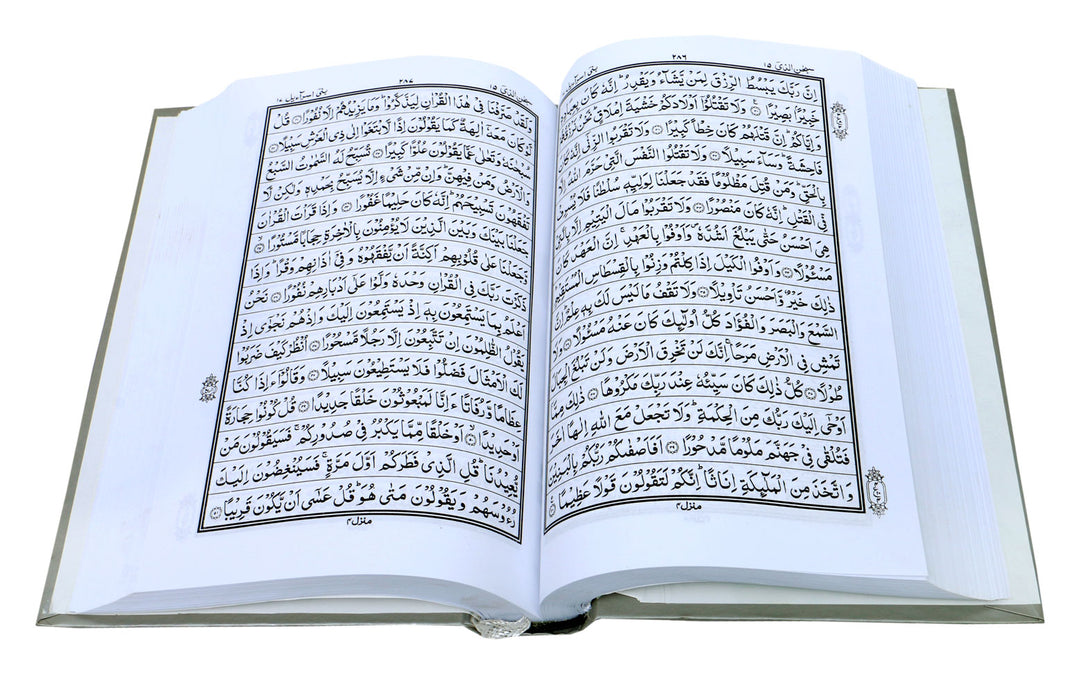 ٢٨٦
سبحن الذی ١٥
بنی اسرآءیل
اِنَّ رَبَّكَ یَبْسُطُ الرِّزْقَ لِمَنْ یَّشَآءُ وَیَقْدِرُ ؕ اِنَّهٗ كَانَ بِعِبَادِهٖ
خَبِیْرًۢا بَصِیْرًا ۝٣٠ وَلَا تَقْتُلُوْۤا اَوْلَادَكُمْ خَشْیَةَ اِمْلَاقٍ ؕ نَحْنُ نَرْزُقُهُمْ
وَاِیَّاكُمْ ؕ اِنَّ قَتْلَهُمْ كَانَ خِطْاً كَبِیْرًا ۝٣١ وَلَا تَقْرَبُوا الزِّنٰۤی اِنَّهٗ كَانَ
فَاحِشَةً ؕ وَسَآءَ سَبِیْلًا ۝٣٢ وَلَا تَقْتُلُوا النَّفْسَ الَّتِیْ حَرَّمَ اللّٰهُ اِلَّا
بِالْحَقِّ ؕ وَمَنْ قُتِلَ مَظْلُوْمًا فَقَدْ جَعَلْنَا لِوَلِیِّهٖ سُلْطٰنًا فَلَا یُسْرِفْ
فِّی الْقَتْلِ ؕ اِنَّهٗ كَانَ مَنْصُوْرًا ۝٣٣ وَلَا تَقْرَبُوْا مَالَ الْیَتِیْمِ اِلَّا بِالَّتِیْ
هِیَ اَحْسَنُ حَتّٰی یَبْلُغَ اَشُدَّهٗ ۪ وَاَوْفُوْا بِالْعَهْدِ ۚ اِنَّ الْعَهْدَ كَانَ
مَسْـُٔوْلًا ۝٣٤ وَاَوْفُوا الْكَیْلَ اِذَا كِلْتُمْ وَزِنُوْا بِالْقِسْطَاسِ الْمُسْتَقِیْمِ ؕ
ذٰلِكَ خَیْرٌ وَّاَحْسَنُ تَاْوِیْلًا ۝٣٥ وَلَا تَقْفُ مَا لَیْسَ لَكَ بِهٖ عِلْمٌ ؕ اِنَّ
السَّمْعَ وَالْبَصَرَ وَالْفُؤَادَ كُلُّ اُولٰٓئِكَ كَانَ عَنْهُ مَسْـُٔوْلًا ۝٣٦ وَلَا
تَمْشِ فِی الْاَرْضِ مَرَحًا ۚ اِنَّكَ لَنْ تَخْرِقَ الْاَرْضَ وَلَنْ تَبْلُغَ الْجِبَالَ
طُوْلًا ۝٣٧ كُلُّ ذٰلِكَ كَانَ سَیِّئُهٗ عِنْدَ رَبِّكَ مَكْرُوْهًا ۝٣٨ ذٰلِكَ مِمَّاۤ
اَوْحٰۤی اِلَیْكَ رَبُّكَ مِنَ الْحِكْمَةِ ؕ وَلَا تَجْعَلْ مَعَ اللّٰهِ اِلٰهًا اٰخَرَ
فَتُلْقٰی فِیْ جَهَنَّمَ مَلُوْمًا مَّدْحُوْرًا ۝٣٩ اَفَاَصْفٰىكُمْ رَبُّكُمْ بِالْبَنِیْنَ
وَاتَّخَذَ مِنَ الْمَلٰٓئِكَةِ اِنَاثًا ؕ اِنَّكُمْ لَتَقُوْلُوْنَ قَوْلًا عَظِیْمًا ۝٤٠
منزل ٤
٢٨٧
سبحن الذی ١٥
بنی اسرآءیل ١٧
وَلَقَدْ صَرَّفْنَا فِیْ هٰذَا الْقُرْاٰنِ لِیَذَّكَّرُوْا ؕ وَمَا یَزِیْدُهُمْ اِلَّا نُفُوْرًا ۝٤١ قُلْ
لَّوْ كَانَ مَعَهٗۤ اٰلِهَةٌ كَمَا یَقُوْلُوْنَ اِذًا لَّابْتَغَوْا اِلٰی ذِی الْعَرْشِ سَبِیْلًا ۝٤٢
سُبْحٰنَهٗ وَتَعٰلٰی عَمَّا یَقُوْلُوْنَ عُلُوًّا كَبِیْرًا ۝٤٣ تُسَبِّحُ لَهُ السَّمٰوٰتُ السَّبْعُ
وَالْاَرْضُ وَمَنْ فِیْهِنَّ ؕ وَاِنْ مِّنْ شَیْءٍ اِلَّا یُسَبِّحُ بِحَمْدِهٖ وَلٰكِنْ لَّا
تَفْقَهُوْنَ تَسْبِیْحَهُمْ ؕ اِنَّهٗ كَانَ حَلِیْمًا غَفُوْرًا ۝٤٤ وَاِذَا قَرَاْتَ الْقُرْاٰنَ
جَعَلْنَا بَیْنَكَ وَبَیْنَ الَّذِیْنَ لَا یُؤْمِنُوْنَ بِالْاٰخِرَةِ حِجَابًا مَّسْتُوْرًا ۝٤٥
وَّجَعَلْنَا عَلٰی قُلُوْبِهِمْ اَكِنَّةً اَنْ یَّفْقَهُوْهُ وَفِیْۤ اٰذَانِهِمْ وَقْرًا ؕ وَاِذَا
ذَكَرْتَ رَبَّكَ فِی الْقُرْاٰنِ وَحْدَهٗ وَلَّوْا عَلٰۤی اَدْبَارِهِمْ نُفُوْرًا ۝٤٦ نَحْنُ
اَعْلَمُ بِمَا یَسْتَمِعُوْنَ بِهٖۤ اِذْ یَسْتَمِعُوْنَ اِلَیْكَ وَاِذْ هُمْ نَجْوٰۤی اِذْ
یَقُوْلُ الظّٰلِمُوْنَ اِنْ تَتَّبِعُوْنَ اِلَّا رَجُلًا مَّسْحُوْرًا ۝٤٧ اُنْظُرْ كَیْفَ ضَرَبُوْا
لَكَ الْاَمْثَالَ فَضَلُّوْا فَلَا یَسْتَطِیْعُوْنَ سَبِیْلًا ۝٤٨ وَقَالُوْۤا ءَاِذَا كُنَّا
عِظَامًا وَّرُفَاتًا ءَاِنَّا لَمَبْعُوْثُوْنَ خَلْقًا جَدِیْدًا ۝٤٩ قُلْ كُوْنُوْا حِجَارَةً
اَوْ حَدِیْدًا ۝٥٠ اَوْ خَلْقًا مِّمَّا یَكْبُرُ فِیْ صُدُوْرِكُمْ ۚ فَسَیَقُوْلُوْنَ مَنْ
یُّعِیْدُنَا ؕ قُلِ الَّذِیْ فَطَرَكُمْ اَوَّلَ مَرَّةٍ ۚ فَسَیُنْغِضُوْنَ اِلَیْكَ
رُءُوْسَهُمْ وَیَقُوْلُوْنَ مَتٰی هُوَ ؕ قُلْ عَسٰۤی اَنْ یَّكُوْنَ قَرِیْبًا ۝٥١
منزل ٤